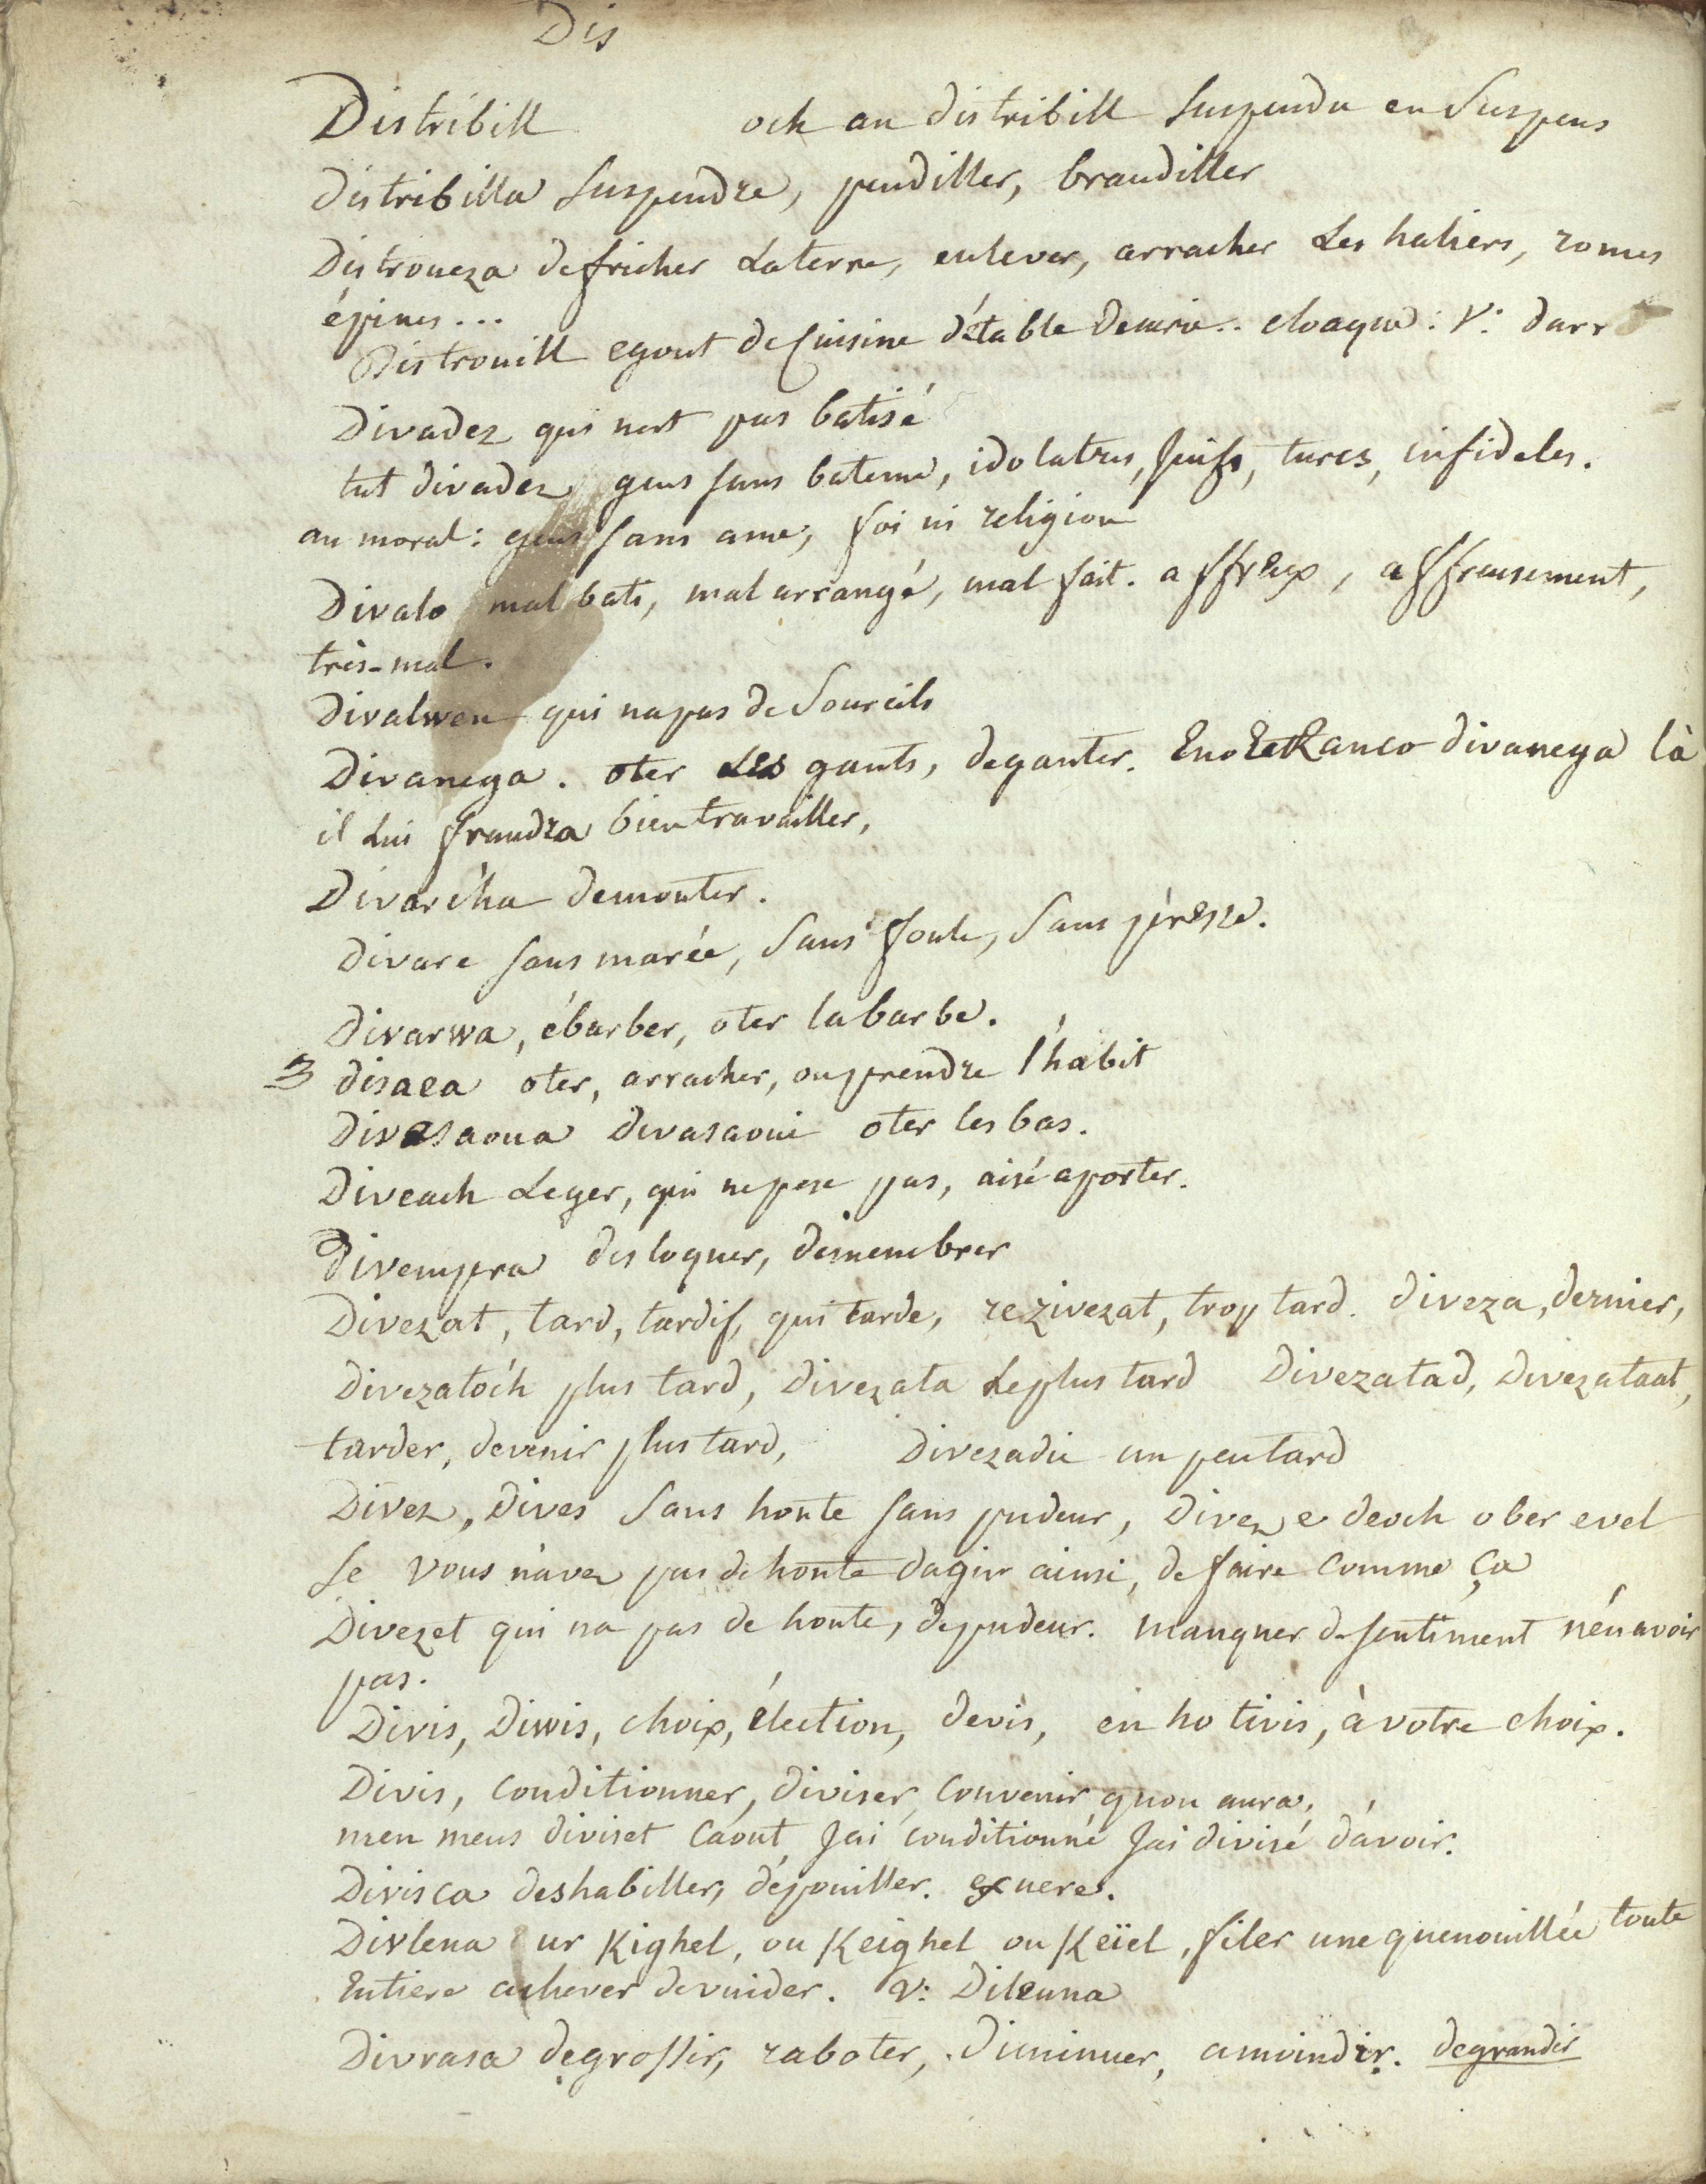 Dis
Distribill och an distribill Suspendu en Suspens
distribilla Suspendre, pendiller, brandiller
Distroueza defricher Laterre, enlever, arracher Les haliers, ronces
épines...
Distrouill egout de Cuisine d'étable cloaque: V: darr
Divadez qui nest pas batisé
tut divadez gens sans bateme, idolatres, Juifs, turcs, infideles.
au moral: gens sans ame, foi ni religion
Divalo mal bati, mal arrangé, mal fait. affreux, affreusement,
très-mal.
Divalwen qui napas de Sourcils
Divanega. oter Les gants, deganter. divanega là
il Lui fraudra bien travailler,
Divarc'ha demonter.
divare sans marée, Sans foule, Sans presse.
divarwa, ébarber, oter labarbe.
3 disaea oter, arracher, ou prendre l'habit
divasaoua divasaoui oter les bas.
Diveach Leger, qui nepese pas, aisé aporter.
Divempra disloquer, demembrer
Divezat, tard, tardif, qui tarde, rezivezat, trop tard. diveza, dernier,
divezatoc'h plus tard, divezata Leplus tard Divezatad, divezataat,
tarder, devenir plus tard, Divezadic un peu tard
Divez, dives Sans honte sans pudeur, divez e deoch ober evel
se vous n'avez pas de honte dagir ainsi, de faire comme ça
Divezet qui na pas de honte, depudeur. manquer de sentiment n'en avoir
pas.
Divis, Diwis, choix, élection, devis, en ho tivis, à votre choix.
Divis, conditionner, diviser, convenir quon aura,
men meus diviset Caout, Jai conditionné Jai divisé d'avoir.
Divisca deshabiller, dépouiller. exuere.
Divlena ur Kighel, ou Keighel ou Keïel, filer une quenouillée toute
Entiere achever devuider. V: Dileuna
Divrasa degrossir, raboter, diminuer, amoindrir. degrandir